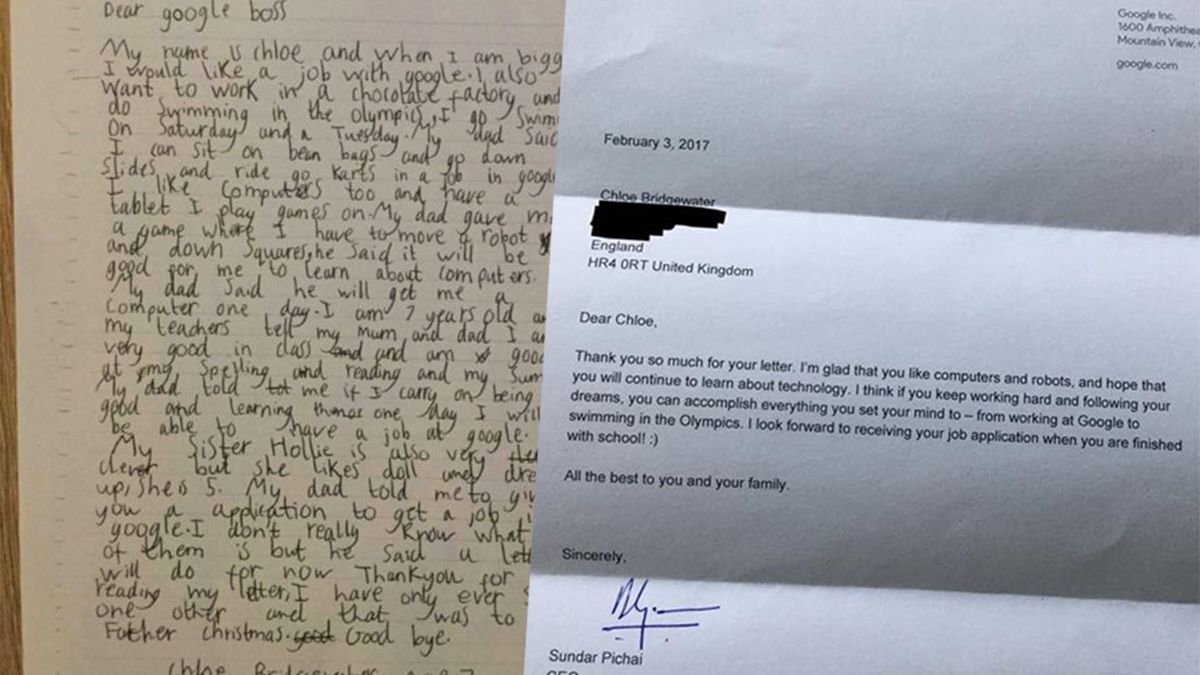 Dear google boss
My name is chloe and when I am bigg
I would like a job with google. I also
Want to work in a chocolate factory and
do swimming in the olympics, I go Swim
On Saturday and a Tuesday. My dad Said
I can sit on bean bags and go down
slides and ride go karts in a job in google
I like computers too and have a
tablet I play games on. My dad gave m
a game where I have to move a robot
and down Squares, he said it will be
good for me to learn about computers.
My dad said he will get me a
Computer one day. I am 7 years old a
my teachers tell my mum and dad I a
very good in class and and am good
at my spelling and reading and my Sum
My dad told tot me if I carry on being
good and learning thinas one day I will
be able to have a job at google.
My Sister Hollie is also very
clever but she likes doll and dre
up, she is 5. My dad told me to gi
you a application to get a job i
google. I don't really know what
of them is but he said a lett
will do for now Thankyou for
reading my letter, I have only ever s
one other and that was to
Father christmas. good Good bye.
Chloe Bridgewater
Google Inc.
1600 Amphithea
Mountain View,
google.com
February 3, 2017
Chloe Bridgewater
England
HR4 0RT United Kingdom
Dear Chloe,
Thank you so much for your letter. I'm glad that you like computers and robots, and hope that
you will continue to learn about technology. I think if you keep working hard and following your
dreams, you can accomplish everything you set your mind to – from working at Google to
swimming in the Olympics. I look forward to receiving your job application when you are finished
with school! :)
All the best to you and your family.
Sincerely,
Sundar Pichai
CEO